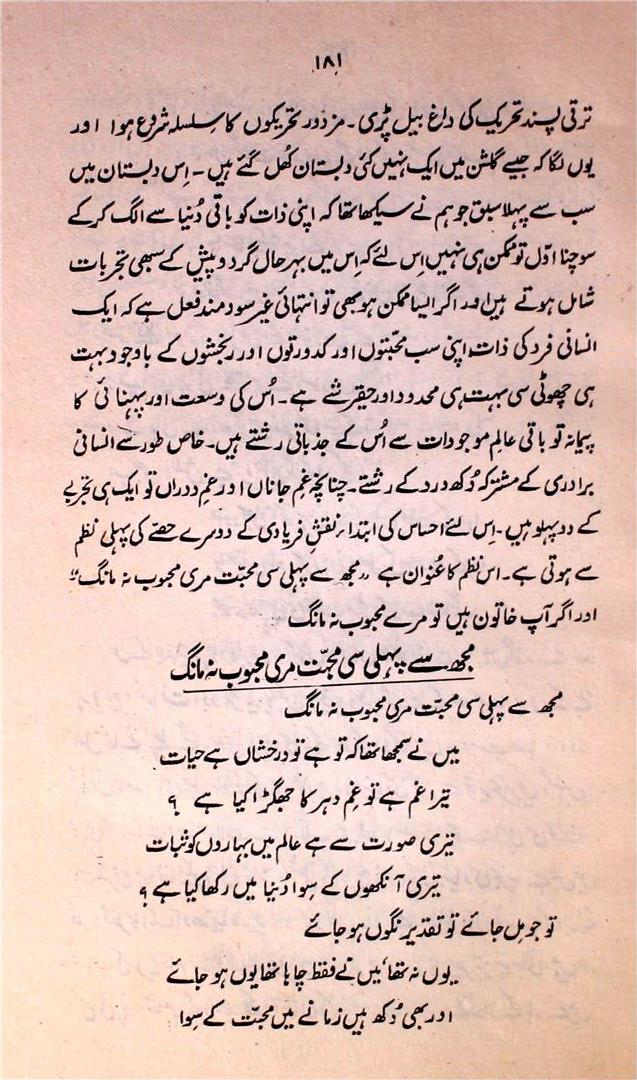 ۱۸۱
ترقی پسند تحریک کی داغ بیل پڑی۔ مزدور تحریکوں کا سلسلہ شروع ہوا اور
یوں لگا کہ جیسے گلشن میں ایک نہیں کئی دبستان کھُل گئے ہیں۔ اِس دبستان میں
سب سے پہلا سبق جو ہم نے سیکھا تھا کہ اپنی ذات کو باقی دُنیا سے الگ کرکے
سوچنا اوّل تو ممکن ہی نہیں اِس لئے کہ اِس میں بہرحال گردوپیش کے سبھی تجربات
شامل ہوتے ہیں اور اگر ایسا ممکن ہو بھی تو انتہائی غیر سودمند فعل ہے کہ ایک
انسانی فرد کی ذات اپنی سب محبّتوں اور کدورتوں اور رنجشوں کے باوجود بہت
ہی چھوٹی سی بہت ہی محدود اور حقیر شے ہے۔ اُس کی وسعت اور پہنائی کا
پیمانہ تو باقی عالمِ موجودات سے اُس کے جذباتی رشتے ہیں۔ خاص طور سے انسانی
برادری کے مشترکہ دُکھ درد کے رشتے۔ چنانچہ غمِ جاناں اور غمِ دوراں تو ایک ہی تجربے
کے دو پہلو ہیں۔ اِس لئے احساس کی ابتداء نقشِ فریادی کے دوسرے حصّے کی پہلی نظم
سے ہوتی ہے۔ اس نظم کا عُنوان ہے ”مجھ سے پہلی سی محبّت مری محبوب نہ مانگ“
اور اگر آپ خاتون ہیں تو مرے محبوب نہ مانگ
مجھ سے پہلی سی محبّت مری محبوب نہ مانگ
مجھ سے پہلی سی محبّت مری محبوب نہ مانگ
میں نے سمجھا تھا کہ تو ہے تو درخشاں ہے حیات
تیرا غم ہے تو غمِ دہر کا جھگڑا کیا ہے ؟
تیری صورت سے ہے عالم میں بہاروں کو ثبات
تیری آنکھوں کے سوا دُنیا میں رکھا کیا ہے ؟
تو جو مِل جائے تو تقدیر نگوں ہو جائے
یوں نہ تھا، مَیں نے فقط چاہا تھا یوں ہو جائے
اور بھی دُکھ ہیں زمانے میں محبّت کے سِوا